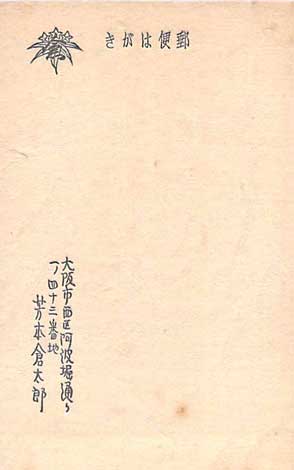 郵便はがき
大阪市西区阿波堀通り
一ノ四十三番地
芳本倉太郎